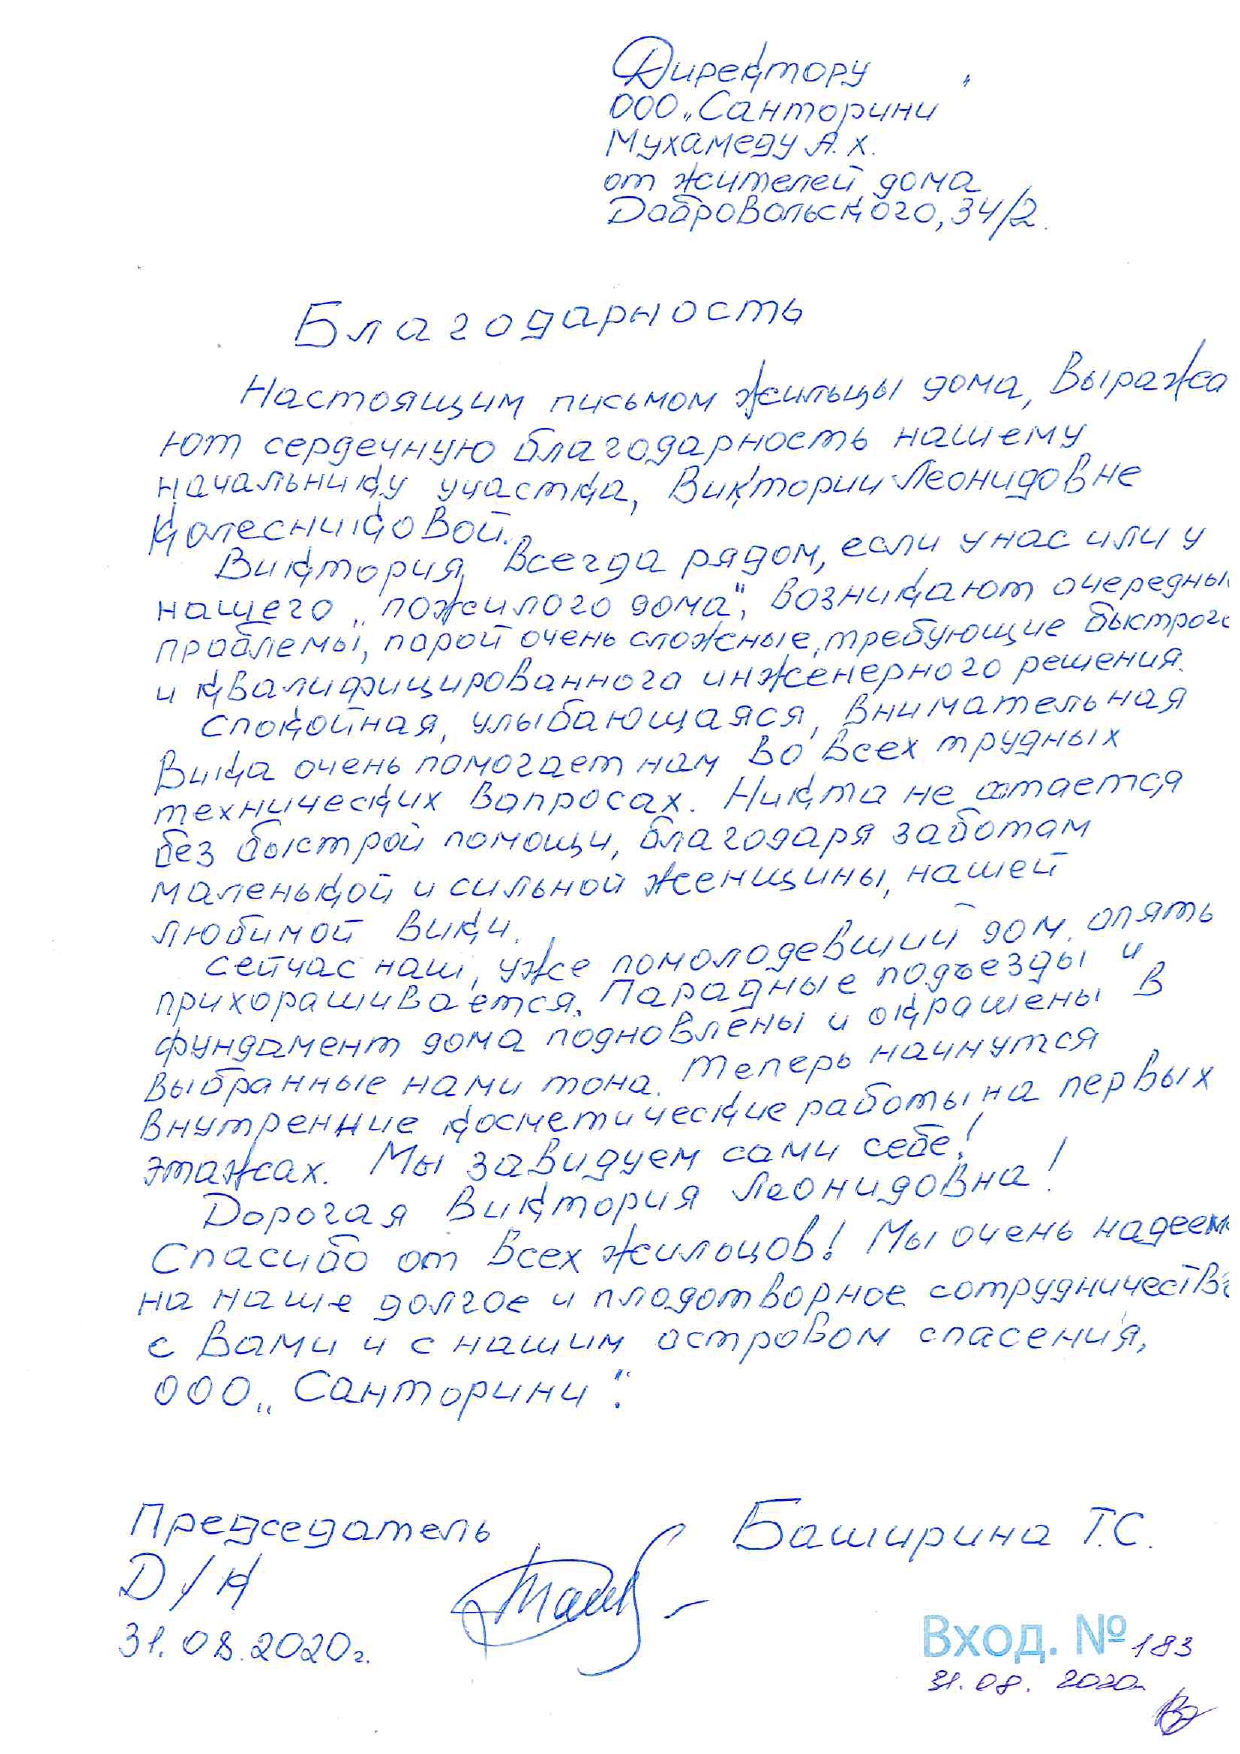 Директору
ООО „Санторини
Мухамеду А. Х.
от жителей дома
Добровольского, 34/2.
Благодарность
Настоящим письмом жильцы дома, выража
ют сердечную благодарность нашему
начальнику участка, Виктории Леонидовне
Колесниковой.
Виктория, всегда рядом, если у нас или у
нашего „пожилого дома", возникают очередны
проблемы, порой очень сложные, требующие быстрого
и квалифицированного инженерного решения.
Спокойная, улыбающаяся, внимательная
Вика очень помогает нам во всех трудных
технических вопросах. Никто не остается
без быстрой помощи, благодаря заботам
маленькой и сильной женщины, нашей
любимой Вики.
Сейчас наш, уже помолодевший дом, опять
прихорашивается. Парадные подъезды и
фундамент дома подновлены и окрашены в
выбранные нами тона. Теперь начнутся
внутренние косметические работы на первых
этажах. Мы завидуем сами себе!
Дорогая Виктория Леонидовна!
Спасибо от всех жильцов! Мы очень надеем
на наше долгое и плодотворное сотрудничество
с Вами и с нашим островом спасения,
ООО „Санторини".
Председатель Баширина Т.С.
Д/К
31.08.2020г.
Вход. № 183
31.08. 2020г.